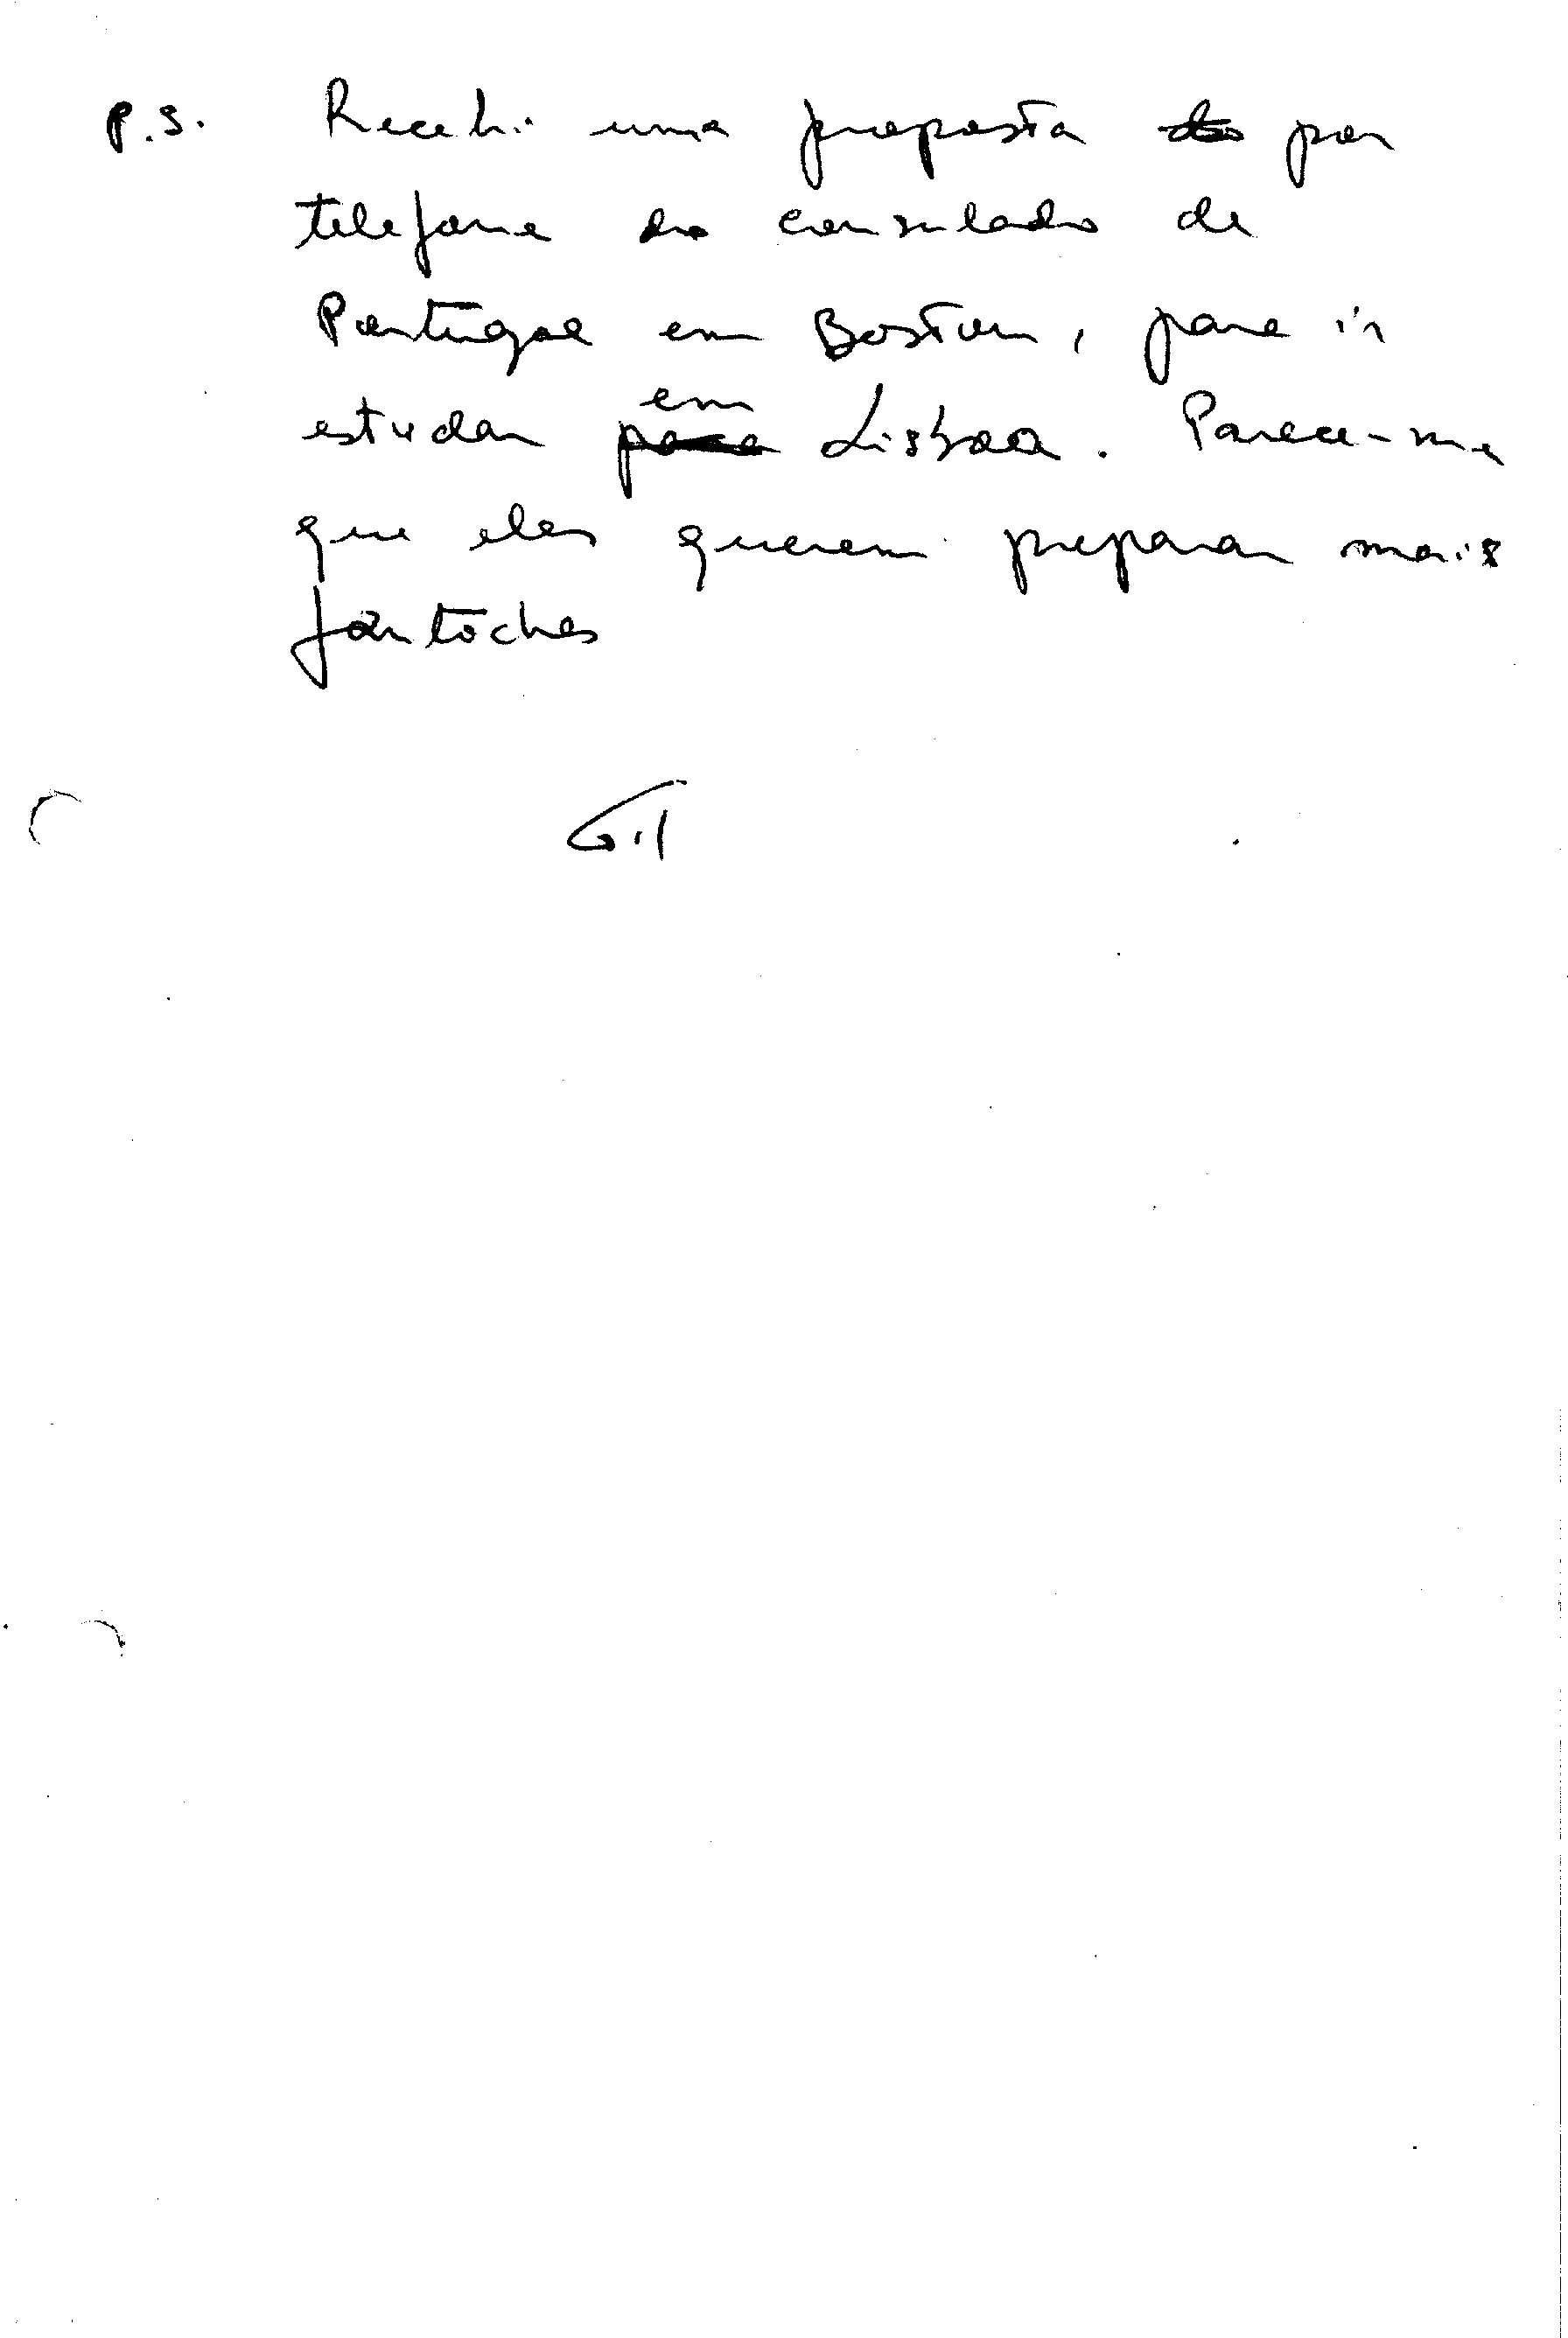 P.S. Recebi uma proposta ~~do~~ por
telefone do consulado de
Portugal em Boston, para ir
em
estudar ~~para~~ Lisboa. Parece-me
que eles querem preparar mais
fantoches
Gil